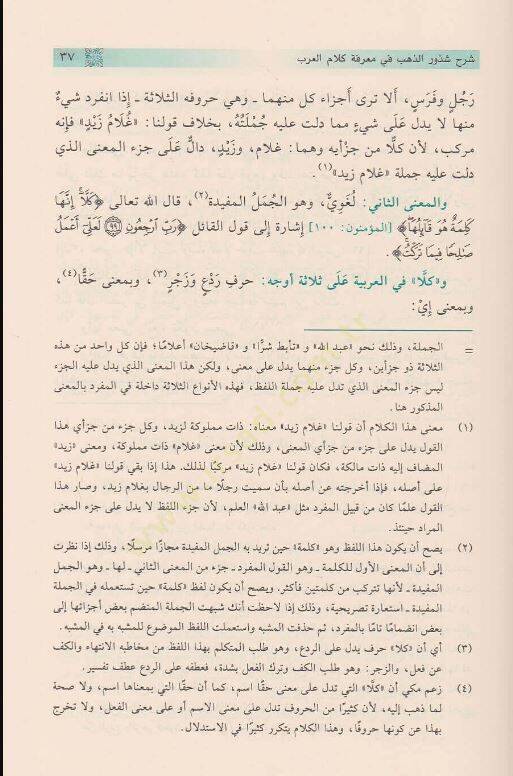 شرح شذور الذهب في معرفة كلام العرب ٣٧
رَجُلٍ وفَرَسٍ، أَلا ترى أجزاء كل منهما ـ وهي حروفه الثلاثة ـ إذا انفرد شيءٌ
منها لا يدل عَلَى شيءٍ مما دلت عليه جُمْلَتُهُ، بخلاف قولنا: «غُلَامُ زَيْدٍ» فإنه
مركب، لأن كلًّا من جزأيه وهما: غلام، وزَيْدٍ، دالٌّ عَلَى جزء المعنى الذي
دلت عليه جملة «غلام زيد»(١).
والمعنى الثاني: لُغَوِيٌّ، وهو الجُمَلُ المفيدة(٢)، قال الله تعالى ﴿كَلَّآ إِنَّهَا
كَلِمَةٌ هُوَ قَآئِلُهَا﴾ [المؤمنون: ١٠٠] إشارة إلى قول القائل ﴿رَبِّ ٱرْجِعُونِ ۝٩٩ لَعَلِّىٓ أَعْمَلُ
صَـٰلِحًا فِيمَا تَرَكْتُ﴾.
و«كلَّا» في العربية عَلَى ثلاثة أوجه: حرفِ رَدْعٍ وَزَجْرٍ(٣)، وبمعنى حَقًّا(٤)،
وبمعنى إيْ:
= الجملة، وذلك نحو «عبد الله» و «تأبط شرًّا» و «قاضيخان» أعلامًا؛ فإن كل واحد من هذه
الثلاثة ذو جزأين، وكل جزء منهما يدل على معنى، ولكن هذا المعنى الذي يدل عليه الجزء
ليس جزء المعنى الذي تدل عليه جملة اللفظ، فهذه الأنواع الثلاثة داخلة في المفرد بالمعنى
المذكور هنا.
(١) معنى هذا الكلام أن قولنا «غلام زيد» معناه: ذات مملوكة لزيد، وكل جزء من جزأي هذا
القول يدل على جزء من جزأي المعنى، وذلك لأن معنى «غلام» ذات مملوكة، ومعنى «زيد»
المضاف إليه ذات مالكة، فكان قولنا «غلام زيد» مركبًا لذلك. هذا إذا بقي قولنا «غلام زيد»
على أصله، فإذا أخرجته عن أصله بأن سميت رجلًا ما من الرجال بغلام زيد، وصار هذا
القول علمًا كان من قبيل المفرد مثل «عبد الله» العلم، لأن جزء اللفظ لا يدل على جزء المعنى
المراد حينئذ.
(٢) يصح أن يكون هذا اللفظ وهو «كلمة» حين تريد به الجمل المفيدة مجازًا مرسلًا، وذلك إذا نظرت
إلى أن المعنى الأول للكلمة ـ وهو القول المفرد ـ جزء من المعنى الثاني ـ لها ـ وهو الجمل
المفيدة ـ لأنها تتركب من كلمتين فأكثر. ويصح أن يكون لفظ «كلمة» حين تستعمله في الجملة
المفيدة ـ استعارة تصريحية، وذلك إذا لاحظت أنك شبهت الجملة المنضم بعض أجزائها إلى
بعض انضمامًا تامًّا بالمفرد، ثم حذفت المشبه واستعملت اللفظ الموضوع للمشبه به في المشبه.
(٣) أي أن «كلَّا» حرف يدل على الردع، وهو طلب المتكلم بهذا اللفظ من مخاطبه الانتهاء والكف
عن فعل، والزجر: وهو طلب الكف وترك الفعل بشدة، فعطفه على الردع عطف تفسير.
(٤) زعم مكي أن «كلَّا» التي تدل على معنى حقًّا اسم، كما أن حقًّا التي بمعناها اسم، ولا صحة
لما ذهب إليه، لأن كثيرًا من الحروف تدل على معنى الاسم أو على معنى الفعل، ولا تخرج
بهذا عن كونها حروفًا، وهذا الكلام يتكرر كثيرًا في الاستدلال.